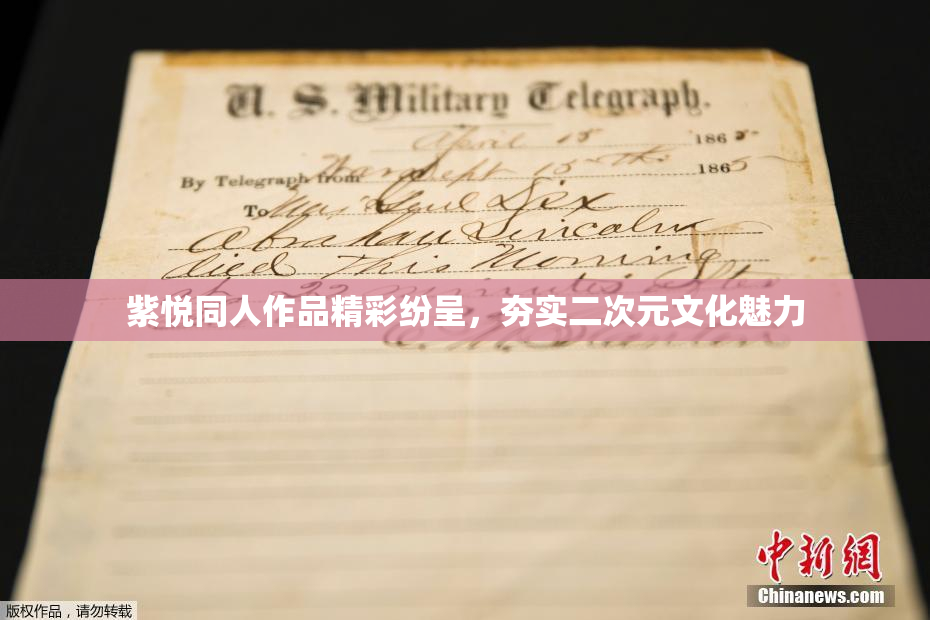 U. S. Military Telegraph.
April 15 1865
By Telegraph from War Dept 15th 1865
To Maj Genl Dix
Abraham Lincoln
died This Morning
at 22 minutes after
紫悦同人作品精彩纷呈，夯实二次元文化魅力
E. M. Stanton
中新网
Chinanews.com
版权作品，请勿转载